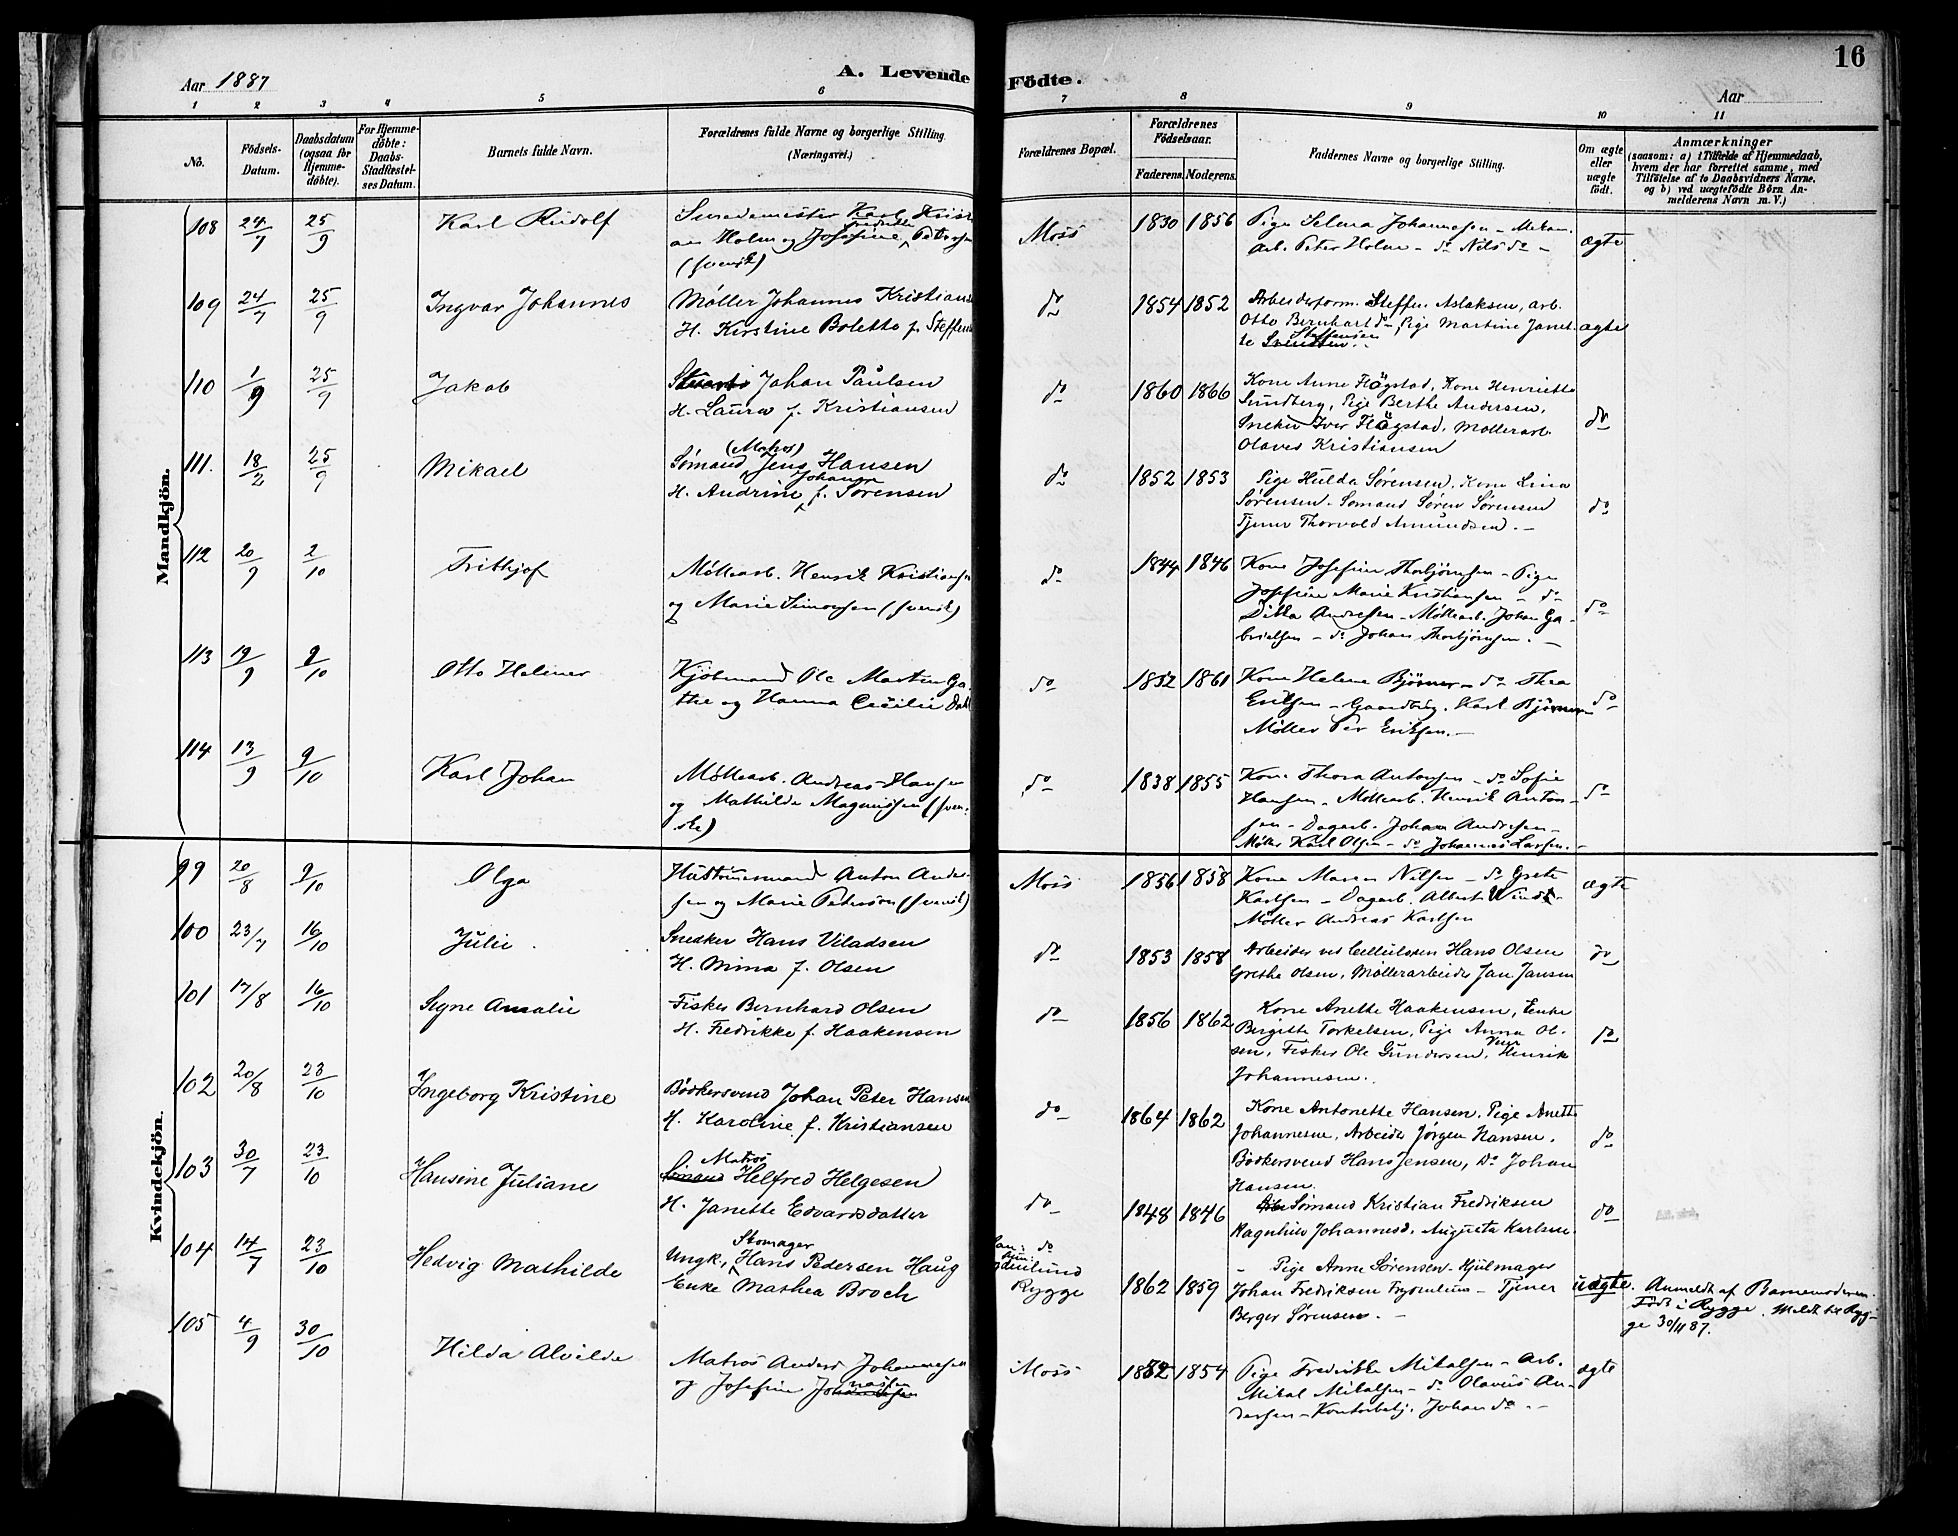 16
Aar 1887
A. Levende Födte.
Aar
1 2 3 4 5 6 7 8 9 10 11
No.
Födsels-Datum.
Daabsdatum (ogsaa for Hjemme-døbte).
For Hjemme-døbte: Daabs-Stadfæstel-ses Datum.
Barnets fulde Navn.
Forældrenes fulde Navne og borgerlige Stilling.
(Næringsvei.)
Forældrenes Bopæl.
Forældrenes Födselsaar.
Faderens. Moderens.
Faddernes Navne og borgerlige Stilling.
Om ægte eller uægte født.
Anmærkninger
(saasom: a) i Tilfælde af Hjemmedaab,
hvem der har forrettet samme, med
Tilföielse af to Daabsvidners Navne,
og b) ved uægtefödte Börn An-
melderens Navn m. V.)
Mandkjön.
108 24/7 25/9 Karl Rudolf
Smedemester Karl Kristi
an Holm og Josefine Fredrikke Petersen
(svensk)
Moss 1830 1856
Pige Selma Johannesen – Mekan.
Arb. Peter Holm – do Nils do –
ægte
109 24/7 25/9 Ingvar Johannes
Møller Johannes Kristians
H. Kirstine Bolette f. Steffens
do 1854 1852
Arbeidsform. Steffen Aslaksen, arb.
Otto Bernhart do, Pige Martine Janet-
te Steffensen
ægte
110 1/9 25/9 Jakob
Johan Paulsen
H. Laura f. Kristiansen
do 1860 1866
Kone Anne Flögstad, Kone Henriette
Sundberg, Pige Berthe Andersen,
Iver Flögstad, Møllerarb.
Olaves Kristiansen
do
111. 18/2 25/9 Mikael
(Matros)
Sømand Jens Hansen
H. Andrine Johanne f. Sørensen
do 1852 1853
Pige Hulda Sørensen, Kone Lina
Sørensen – Sømand Søren Sørensen
Tjener Thorvald Amundsen. –
do
112 20/9 2/10 Frithjof
Møllearb. Henrik Kristiansen
og Marie Simonsen (svensk)
do 1844 1846
Kone Josefine Thorbjörnsen – Pige
Josefine Marie Kristiansen – do
Ditta Andresen – Møllearb. Johan Ga-
brielsen – do Johan Thorbjörnsen. –
do
113 19/9 9/10 Otto Helmer
Kjøbmand Ole Martin Ga-
the og Hanna Cecilie Dahl
do 1832 1861
Kone Helene Bjørner – do Thea
Eriksen – Gaardbrg. Karl Bjørner
Møller Per Eriksen. –
do
114 13/9 9/10 Karl Johan
Møllearb. Andreas Hansen
og Mathilde Magnussen (sven-
ske)
do 1838 1855
Kone Thora Antonsen – do Sofie
Hansen – Møllearb. Henrik Anton-
sen – Dagarb. Johan Andresen –
Møller Karl Olsen – do Johannes Larsen. –
do
Kvindekjön.
99 20/8 9/10 Olga
Hustømmermand Anton Ander-
sen og Marie Peterson (svensk)
Moss 1856 1858
Kone Maren Nilsen – do Grete
Karlsen – Dagarb. Albert Windt
Møller Andreas Karlsen
ægte
100 23/7 16/10 Julie
Snedker Hans Viladsen
H. Mina f. Olsen
do 1853 1858
Arbeider ved Cellulosen Hans Olsen
Grethe Olsen, Møllerarbeider Jan Jansen
do
101 17/8 16/10 Signe Amalie
Fisker Bernhard Olsen
H. Fredrikke f. Haakensen
do 1856 1862
Kone Anette Haakensen, Enke
Bergitte Torkelsen, Pige Anna Ol-
sen, Fisker Ole Gundersen, Henrik
Johannesen.
do
102 20/8 23/10 Ingeborg Kristine
Bödkersvend Johan Peter Hansen
H. Karoline f. Kristiansen
do 1864 1862
Kone Antonette Hansen, Pige Anette
Johannesen, Arbeider Jørgen Hansen.
Bödkersvend Hans Jensen, Do Johan
Hansen.
do
103 30/7 23/10 Hansine Juliane
Matros
Sømand Helfred Helgesen
H. Janette Edvardsdatter
do 1848 1846
Sømand Kristian Fredriksen
Ragnhild Johannesd. Augusta Karlsen
do
104 14/7 23/10 Hedvig Mathilde
Skomager
Ungk. Hans Pedersen Haug
Enke Mathea Broch
do
Rygge
1862 1859
– Pige Anne Sørensen – Hjulmager
Johan Fredriksen Frydenlund – Tjener
Berger Sørensen. –
uægte. Anmeldt af Barnemoderen.
Født i Rygge. Meldt til Ryg-
ge 30/11 87.
105 4/9 30/10 Hilda Alvilde
Matros Anders Johannesen
og Josefine
Moss 1854
Pige Fredrikke Mikalsen – Arb.
Mikal Mikalsen – do Olavus An-
dersen – Kontorbetj. Johan do. –
ægte